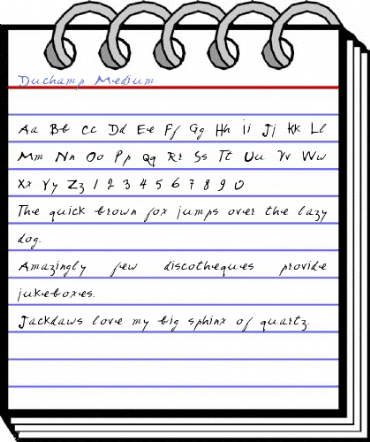 Duchamp Medium
Aa Bb Cc Dd Ee Ff Gg Hh Ii Jj Kk Ll
Mm Nn Oo Pp Qq Rr Ss Tt Uu Vv Ww
Xx Yy Zz 1 2 3 4 5 6 7 8 9 0
The quick brown fox jumps over the lazy
dog.
Amazingly few discotheques provide
jukeboxes.
Jackdaws love my big sphinx of quartz.